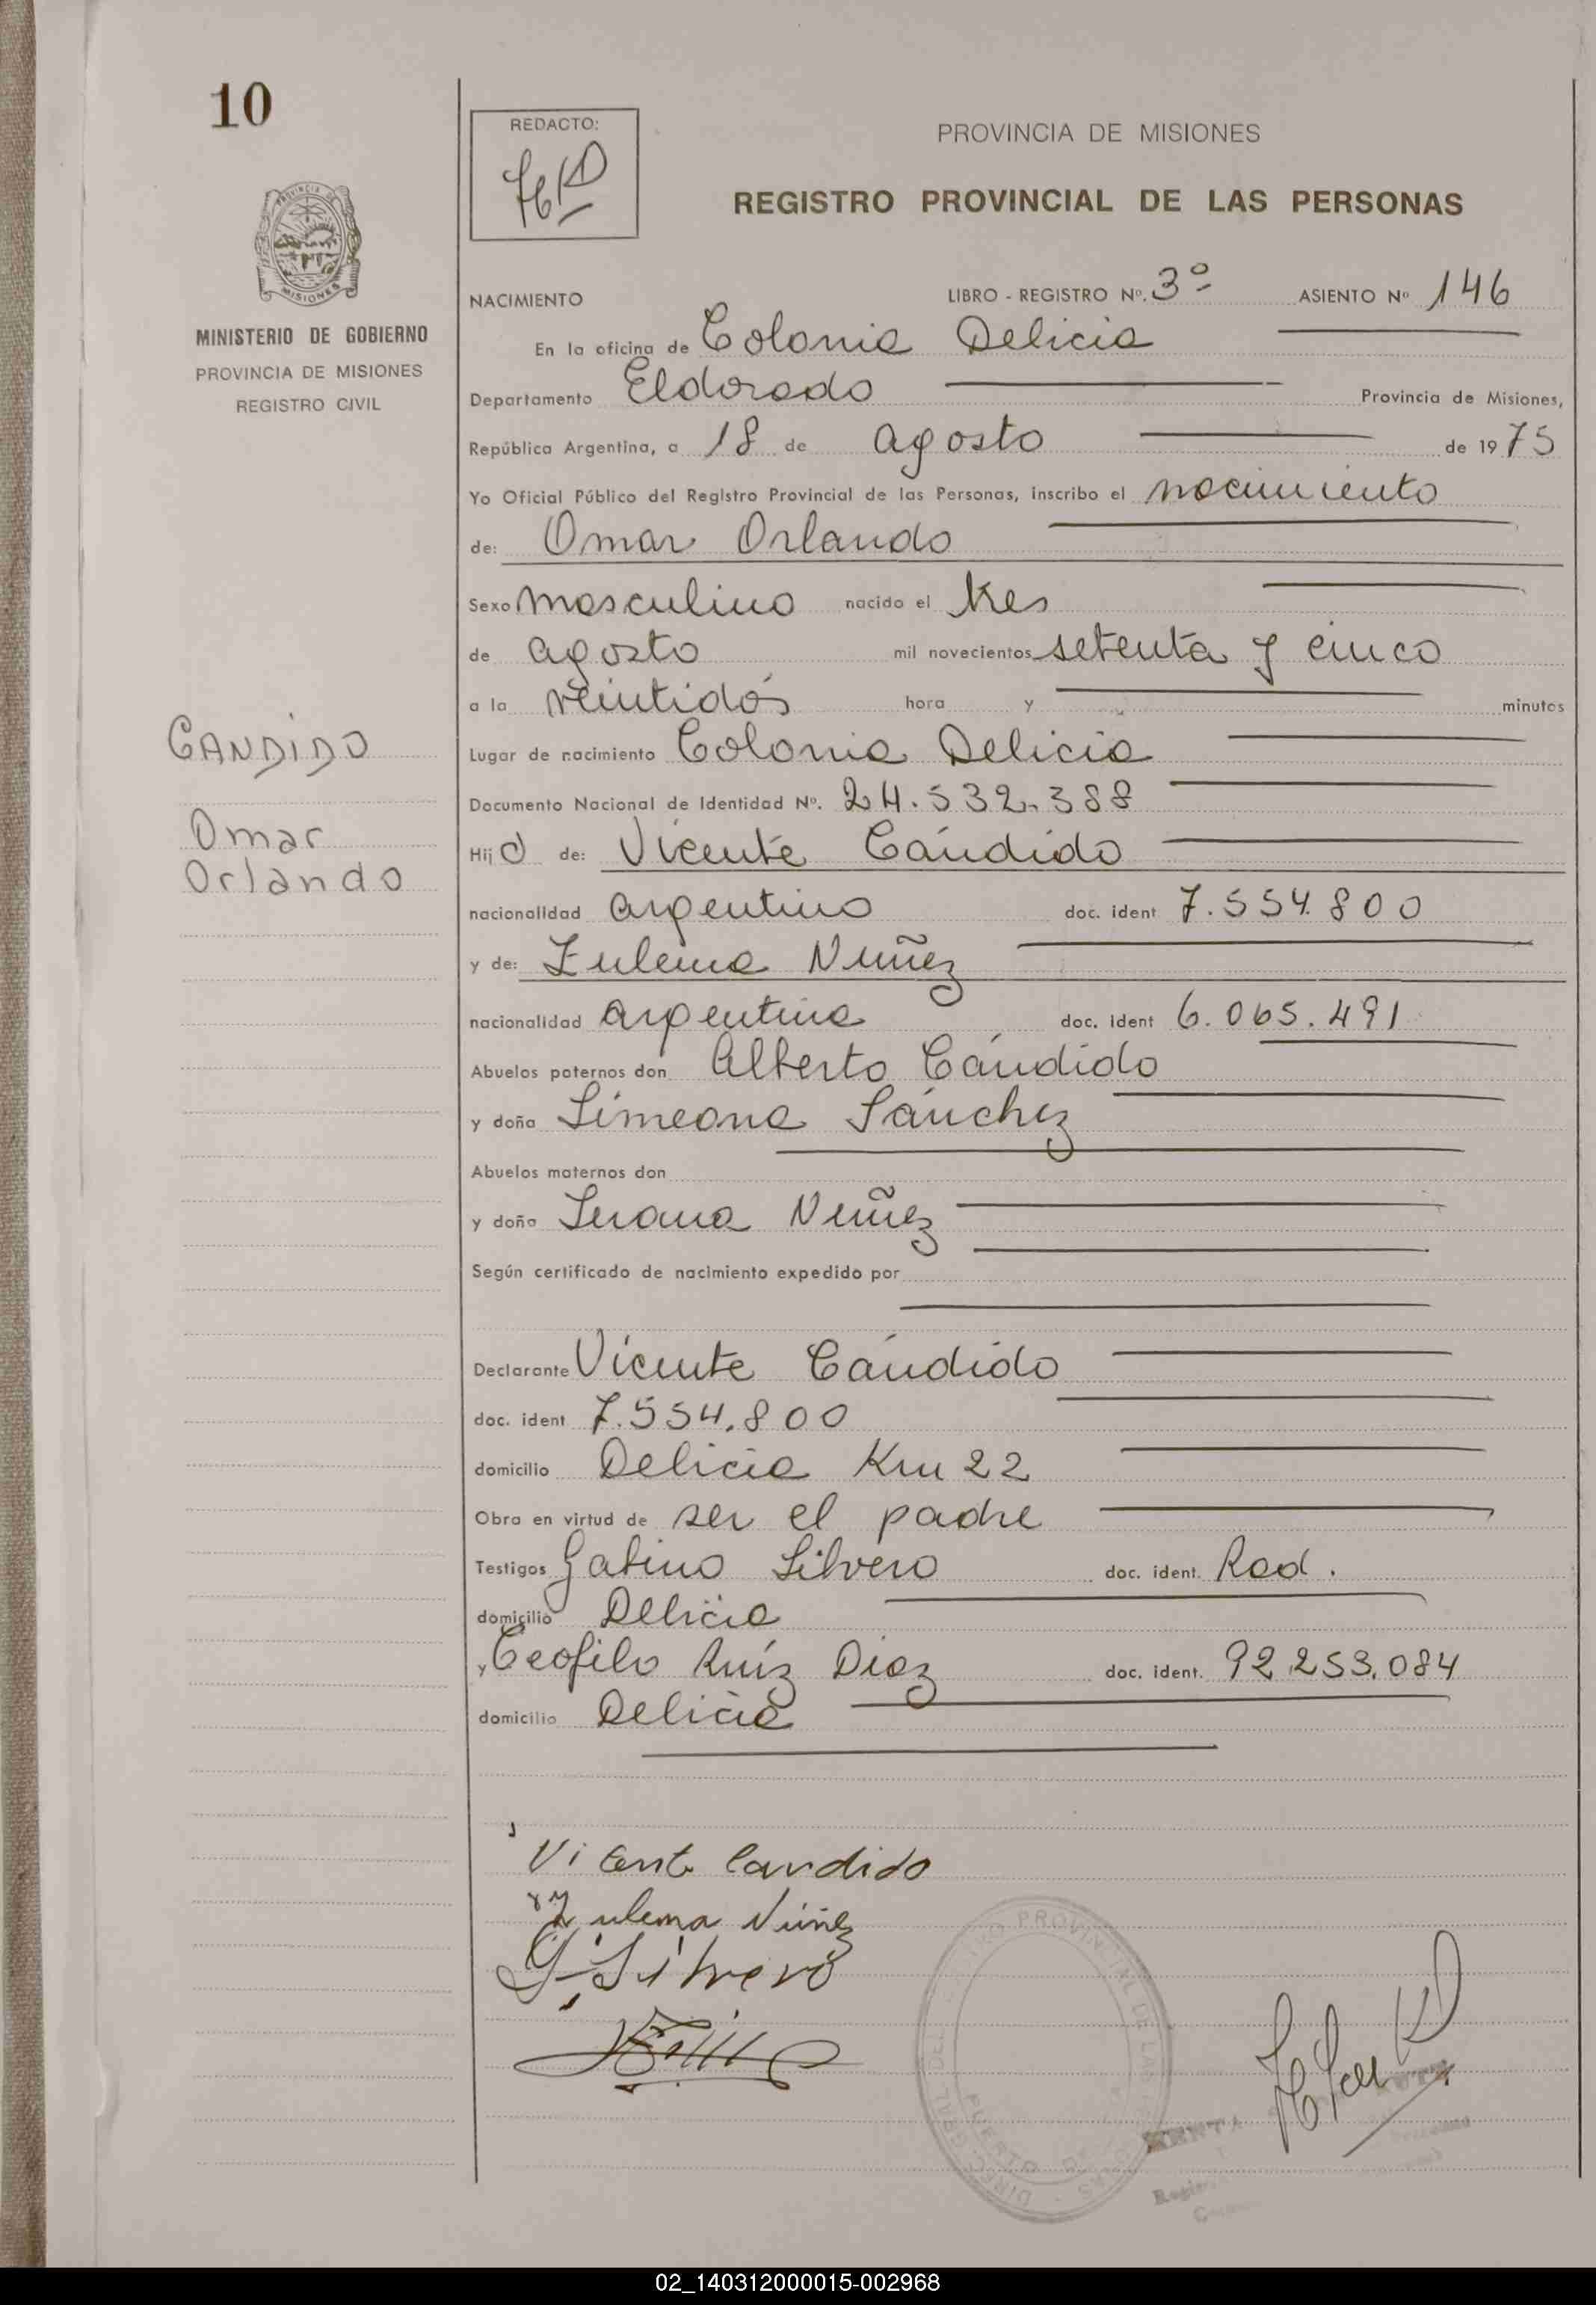 10
MISIONES
MINISTERIO DE GOBIERNO
PROVINCIA DE MISIONES
REGISTRO CIVIL
CANDIDO
Omar
Orlando
REDACTO:
PROVINCIA DE MISIONES
REGISTRO PROVINCIAL DE LAS PERSONAS
NACIMIENTO LIBRO - REGISTRO Nº. 3º ASIENTO Nº 146
En la oficina de Colonia Delicia
Departamento Eldorado Provincia de Misiones,
República Argentina, a 18 de agosto de 1975
Yo Oficial Público del Registro Provincial de las Personas, inscribo el nacimiento
de: Omar Orlando
Sexo masculino nacido el tres
de agosto mil novecientos setenta y cinco
a la veintidós hora y minutos
Lugar de nacimiento Colonia Delicia
Documento Nacional de Identidad Nº. 24.532.388
Hijo de: Vicente Cándido
nacionalidad argentino doc. ident 7.554.800
y de: Zulema Nuñez
nacionalidad argentina doc. ident 6.065.491
Abuelos paternos don Alberto Cándido
y doña Simeona Sánchez
Abuelos maternos don
y doña Nuñez
Según certificado de nacimiento expedido por
Declarante Vicente Cándido
doc. ident 7.554.800
domicilio Delicia Km 22
Obra en virtud de ser el padre
Testigos Gabino Silvero doc. ident. Rad.
domicilio Delicia
y Teofilo Ruíz Diaz doc. ident. 92.253.084
domicilio Delicia
Vicente Candido
Zulema Núñez
G. Silvero
PROVINCIAL DE LAS
02_140312000015-002968